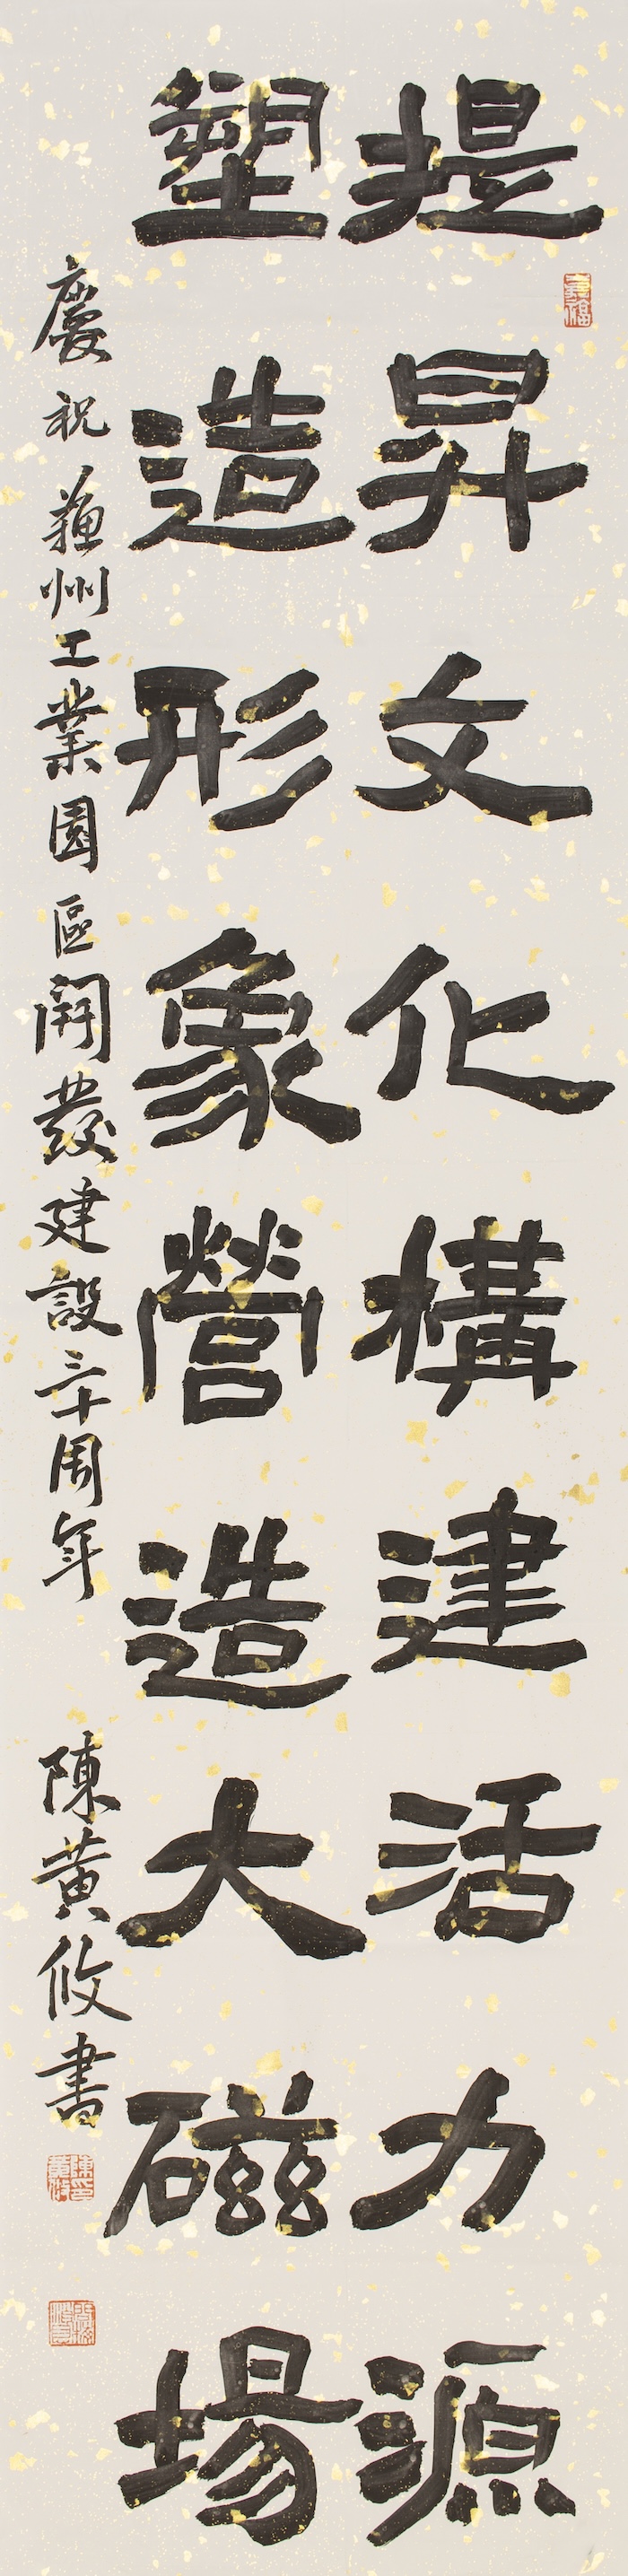 提昇文化構建活力源
塑造形象營造大磁場
慶祝蘇州工業園區開發建設三十周年
陳黃攸書